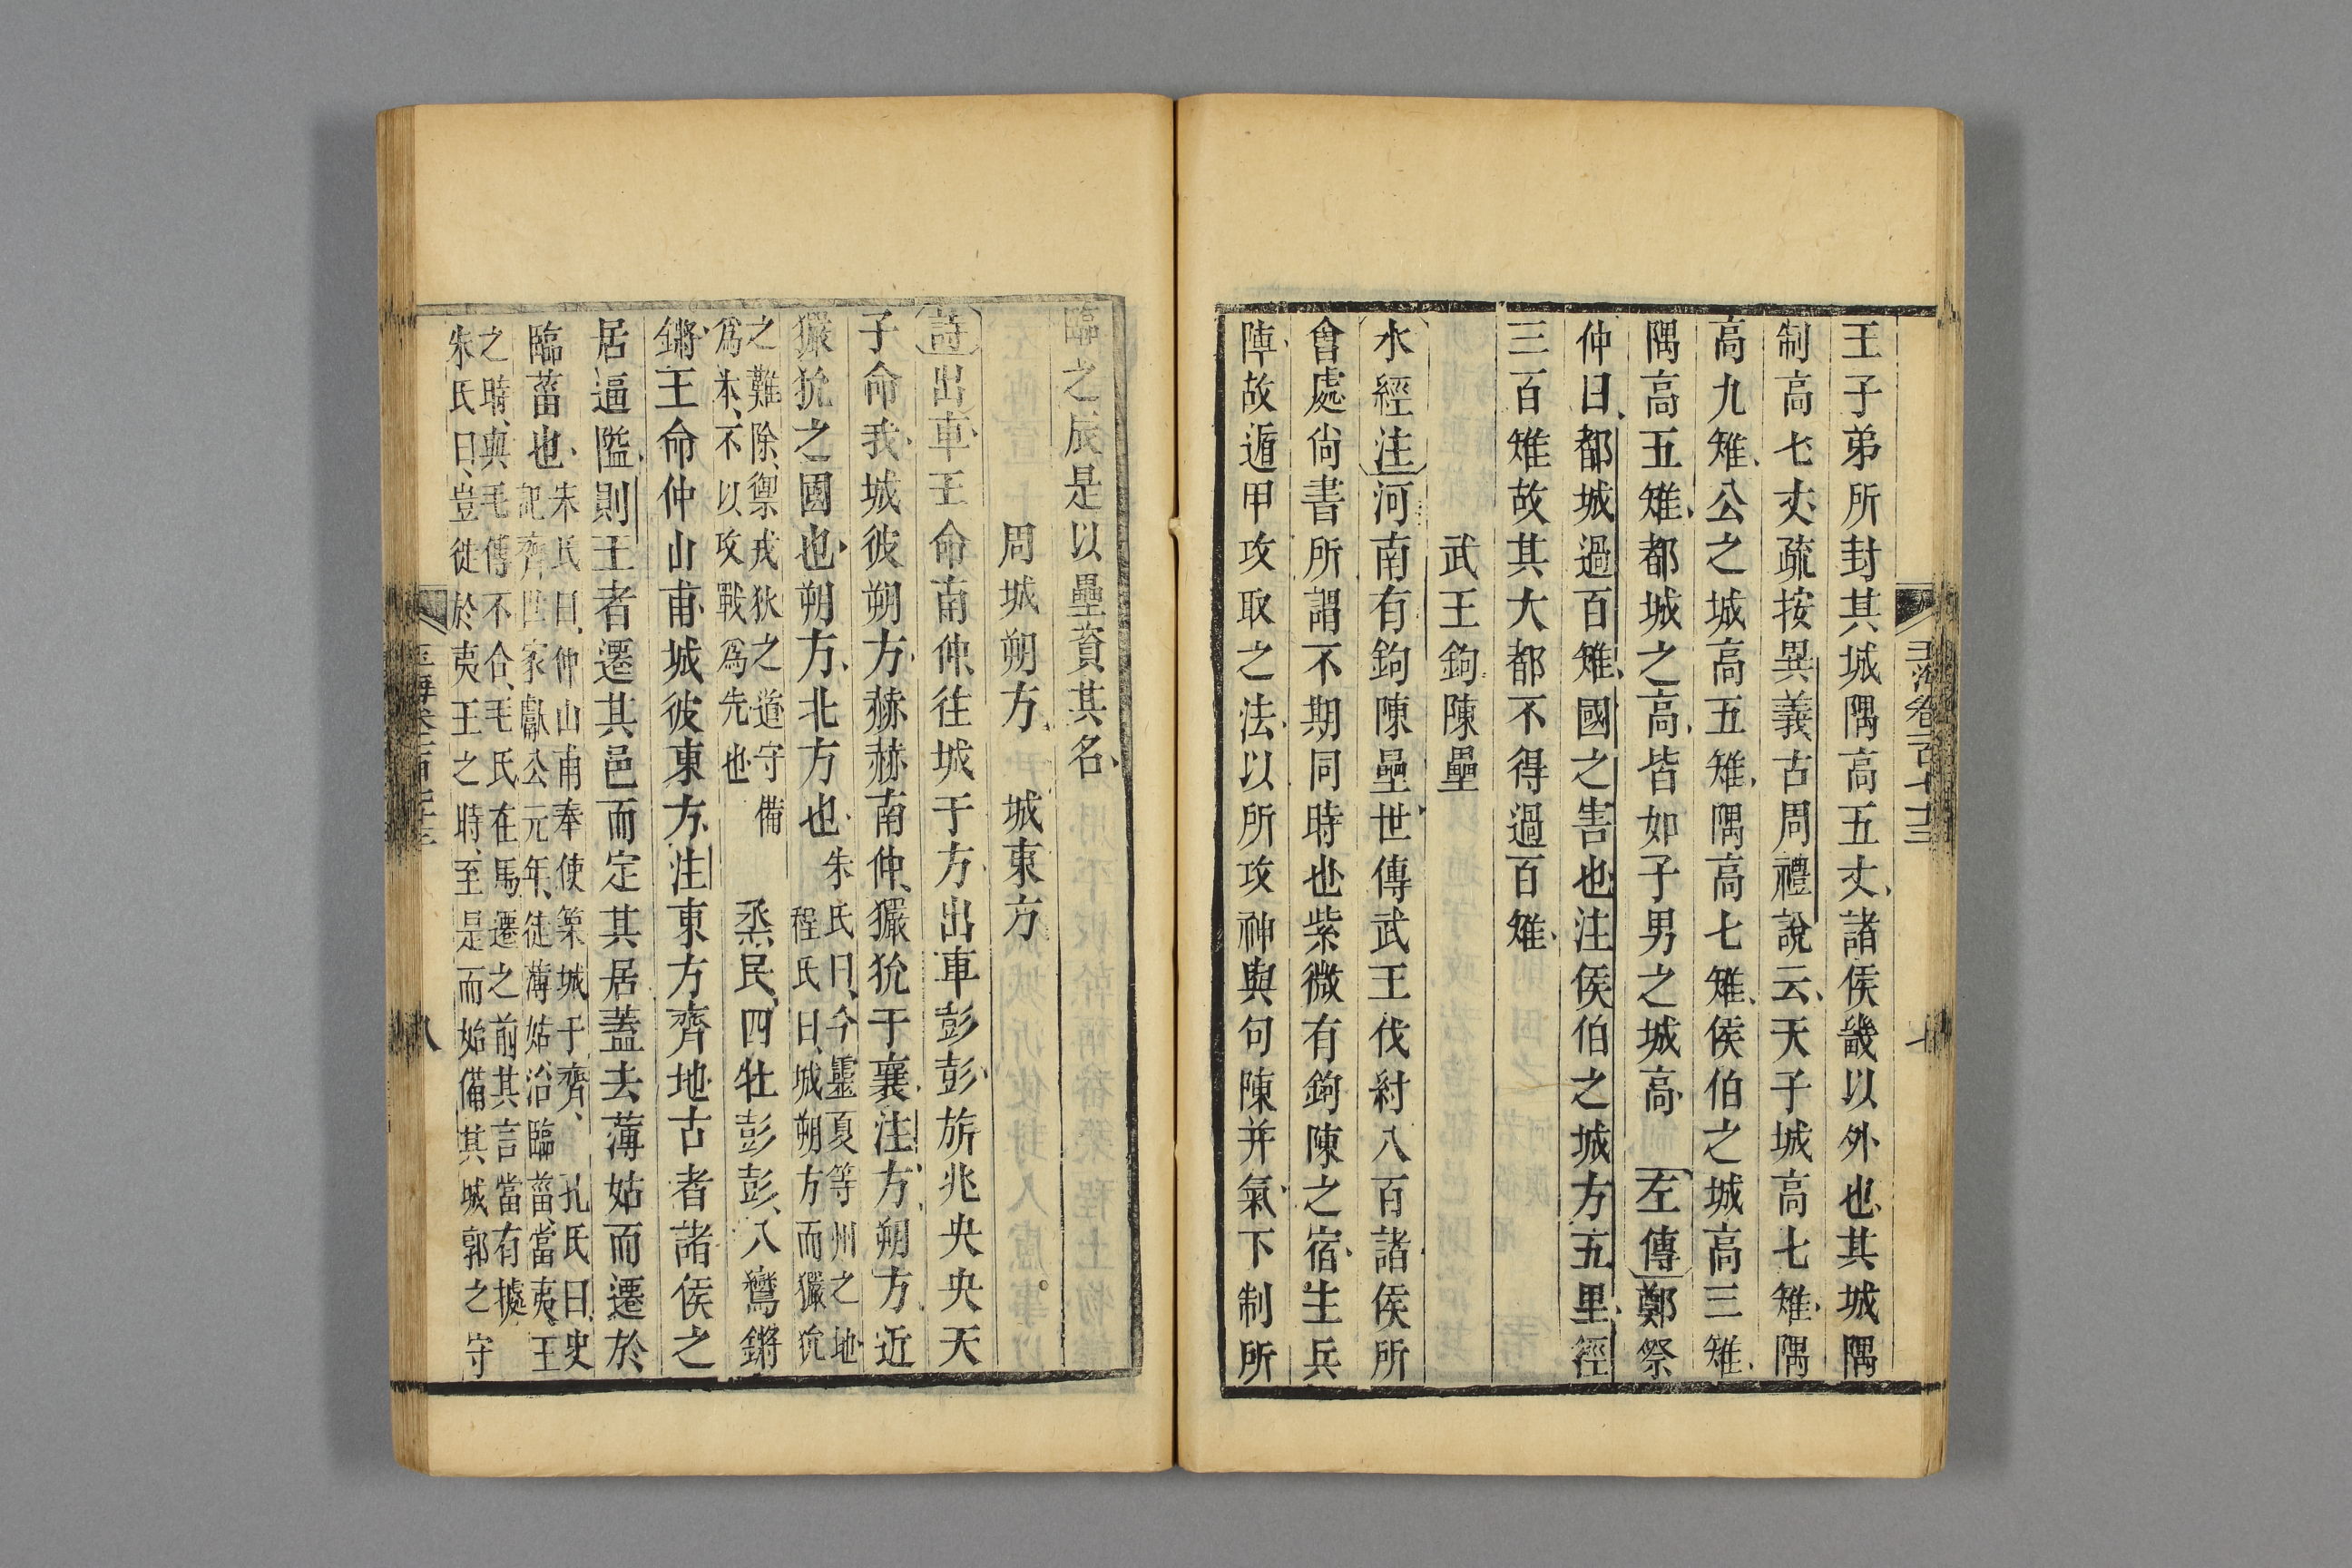 王子弟所封其城隅高五丈諸侯畿以外也其城隅
制高七丈疏按異義古周禮說云天子城高七雉隅
高九雉公之城高五雉隅高七雉侯伯之城高三雉
隅高五雉都城之高皆如子男之城高 左傳鄭祭
仲曰都城過百雉國之害也注侯伯之城方五里徑
三百雉故其大都不得過百雉
武王鉤陳壘
水經注河南有鉤陳壘世傳武王伐紂八百諸侯所
會處尚書所謂不期同時也紫微有鉤陳之宿主兵
陣故遁甲攻取之法以所攻神與句陳并氣下制所
臨之辰是以壘資其名
周城朔方 城東方
詩出車王命南仲往城于方出車彭彭旂旐央央天
子命我城彼朔方赫赫南仲玁狁于襄注方朔方近
玁狁之國也朔方北方也 朱氏曰今靈夏等州之地
程氏曰城朔方而玁狁
之難除禦戎狄之道守備
為本不以攻戰為先也
烝民四牡彭彭八鸞鏘
鏘王命仲山甫城彼東方注東方齊地古者諸侯之
居逼隘則王者遷其邑而定其居蓋去薄姑而遷於
臨菑也 朱氏曰仲山甫奉使築城于齊 孔氏曰史
記齊世家獻公元年徙薄姑治臨菑當夷王
之時與毛傳不合毛氏在馬遷之前其言當有據
朱氏曰豈徙於夷王之時至是而始備其城郭之守
玉海卷一百七十三
七
八